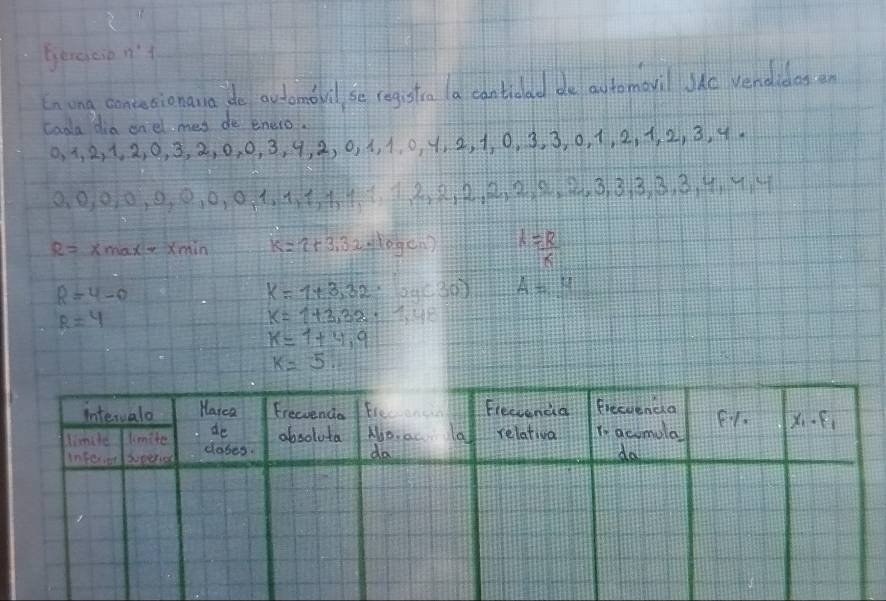 Ejercicio n°1
En una concesionaria de automóvil, se registra la cantidad de automovil JAC vendidos en
cada dia en el mes de enero.
0, 1, 2, 1, 2, 0, 3, 2, 0, 0, 3, 4, 2, 0, 1, 1, 0, 4, 2, 1, 0, 3, 3, 0, 1, 2, 1, 2, 3, 4.
0, 0, 0, 0, 0, 0, 0, 0, 1, 1, 1, 1, 1, 1, 1, 2, 2, 2, 2, 2, 2, 2, 3, 3, 3, 3, 3, 4, 4, 4
R = xmax - xmin K = 1 + 3,32 · log(n) A = R/K
R = 4 - 0 K = 1 + 3,32 · log(30) A = 4
R = 4 K = 1 + 3,32 · 1,48
K = 1 + 4,9
K = 5
intervalo Marca Frecuencia Frecuencia Frecuencia Frecuencia F%. X1 · F1
limite limite de absoluta Abs. acumula relativa r. acomula
inferior superior clases. da da